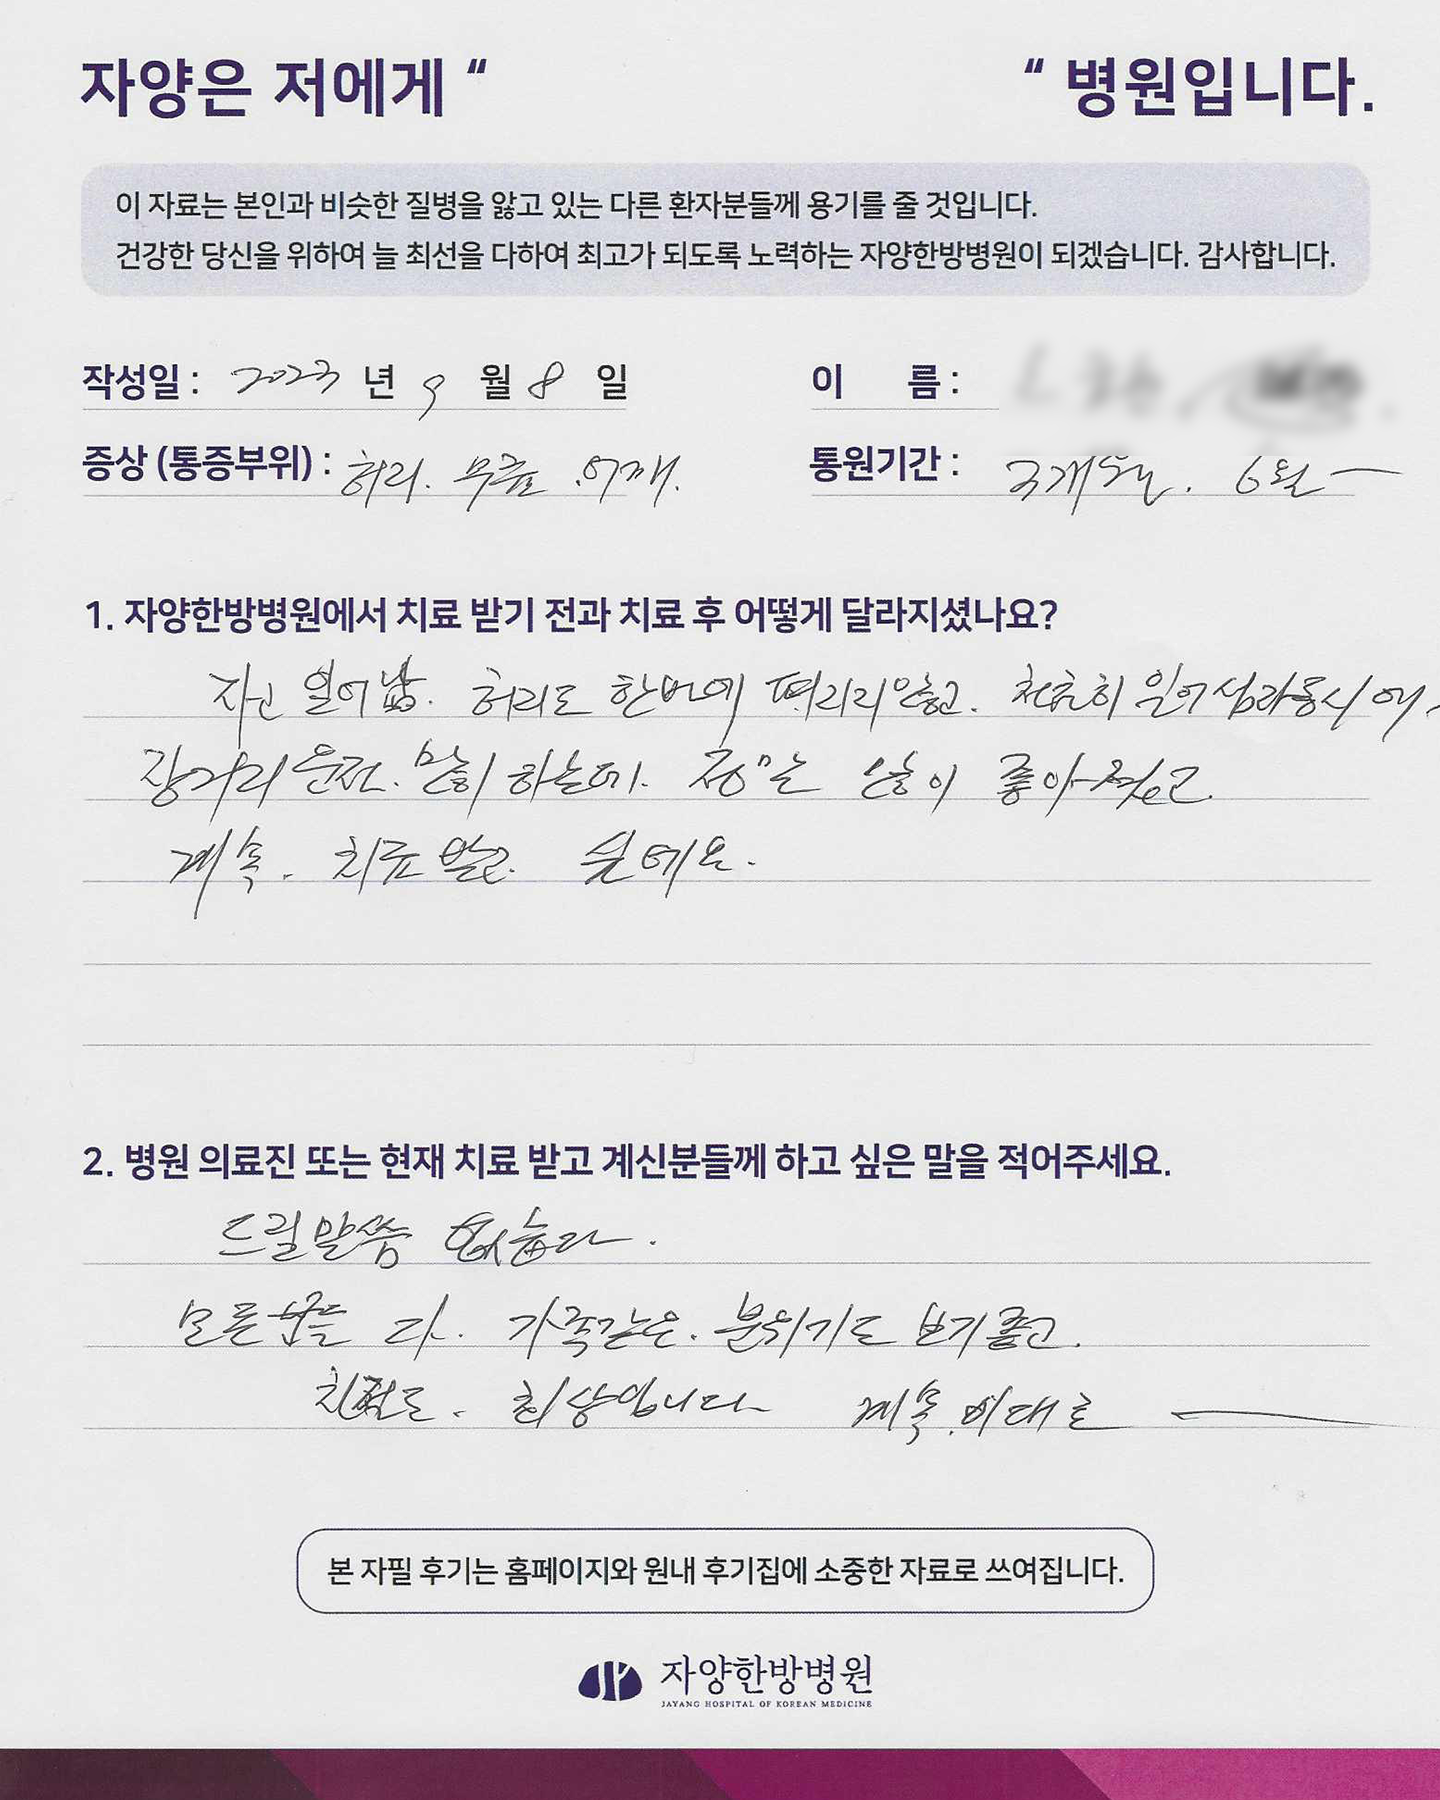 자양은 저에게 “ “ 병원입니다.
이 자료는 본인과 비슷한 질병을 앓고 있는 다른 환자분들께 용기를 줄 것입니다.
건강한 당신을 위하여 늘 최선을 다하여 최고가 되도록 노력하는 자양한방병원이 되겠습니다. 감사합니다.
작성일 : 2023 년 9 월 8 일 이 름 :
증상 (통증부위) : 허리. 무릎 .어깨. 통원기간 : 3개월. 6월 —
1. 자양한방병원에서 치료 받기 전과 치료 후 어떻게 달라지셨나요?
자고 일어남. 허리도 한번에 펴리리않고. 천천히 일어
장거리 운전. 많이 하는데. 정말 많이 좋아졌고.
계속. 치료 받고. 싶네요.
2. 병원 의료진 또는 현재 치료 받고 계신분들께 하고 싶은 말을 적어주세요.
드릴말씀 없습니다.
모든분들 다. 가족같은. 분위기도 보기좋고.
친절도. 최상입니다 계속.이대로 —
본 자필 후기는 홈페이지와 원내 후기집에 소중한 자료로 쓰여집니다.
자양한방병원
JAYANG HOSPITAL OF KOREAN MEDICINE